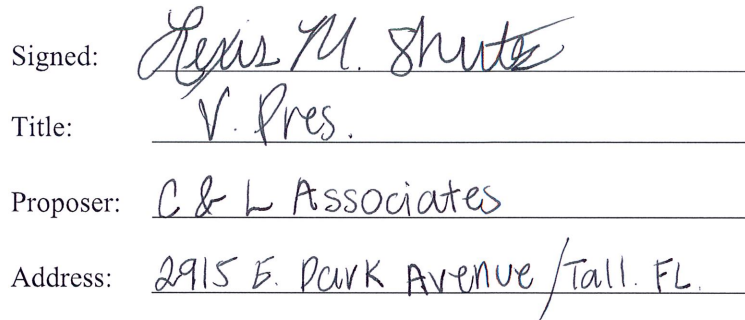 Signed: Lexis M. Shutz
Title: V. Pres.
Proposer: C & L Associates
Address: 2915 E. Park Avenue / Tall. FL.